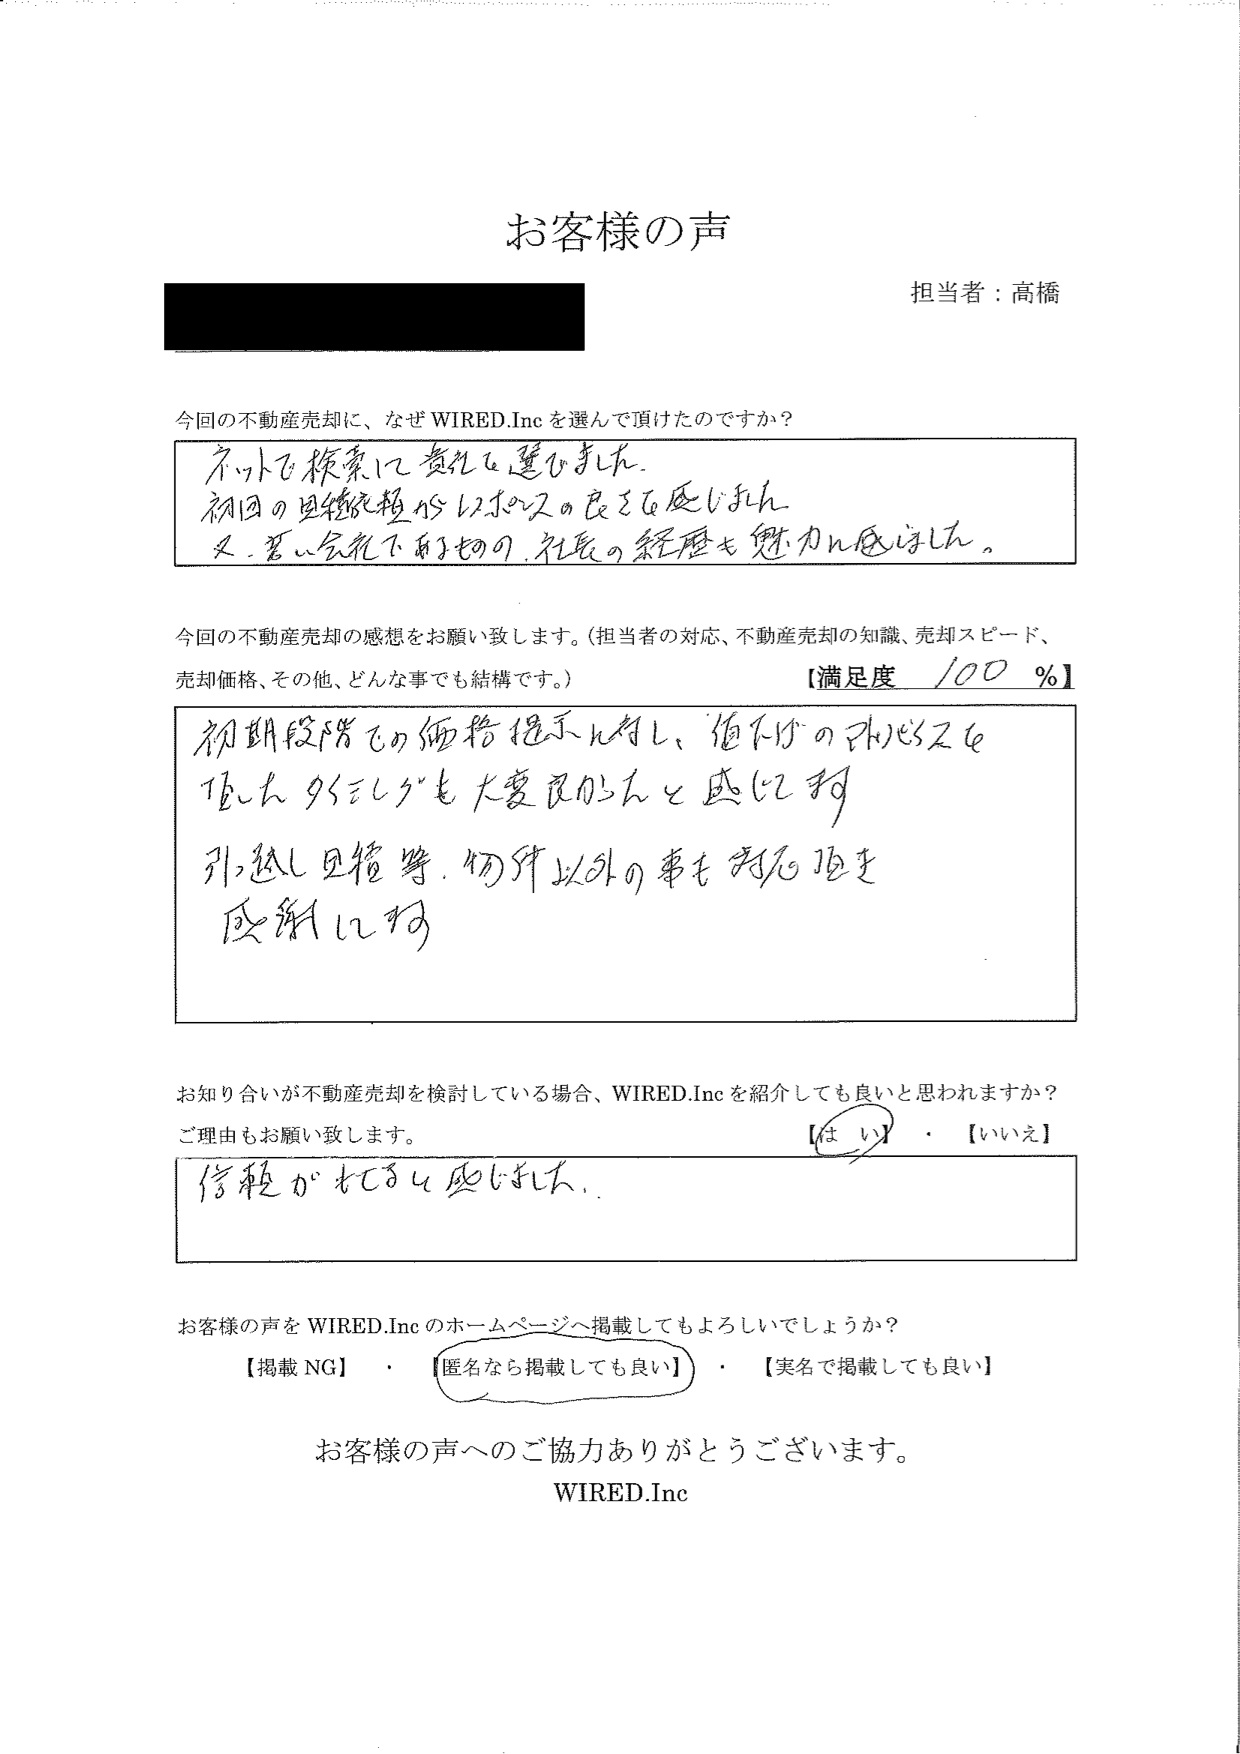 お客様の声
担当者：高橋
今回の不動産売却に、なぜ WIRED.Inc を選んで頂けたのですか？
ネットで検索して貴社を選びました.
初回の見積依頼からレスポンスの良さを感じました
又、若い会社であるものの、社長の経歴も魅力に感じました。
今回の不動産売却の感想をお願い致します。（担当者の対応、不動産売却の知識、売却スピード、
売却価格、その他、どんな事でも結構です。）　【満足度　100　%】
初期段階での価格提示に対し、値下げのアドバイスを
頂いた タイミングも 大変良かったと 感じてます
引っ越し見積等、物件以外の事も対応頂き
感謝してます
お知り合いが不動産売却を検討している場合、WIRED.Inc を紹介しても良いと思われますか？
ご理由もお願い致します。　【は　い】　・　【いいえ】
信頼がもてると感じました.
お客様の声を WIRED.Inc のホームページへ掲載してもよろしいでしょうか？
【掲載 NG】　・　【匿名なら掲載しても良い】　・　【実名で掲載しても良い】
お客様の声へのご協力ありがとうございます。
WIRED.Inc